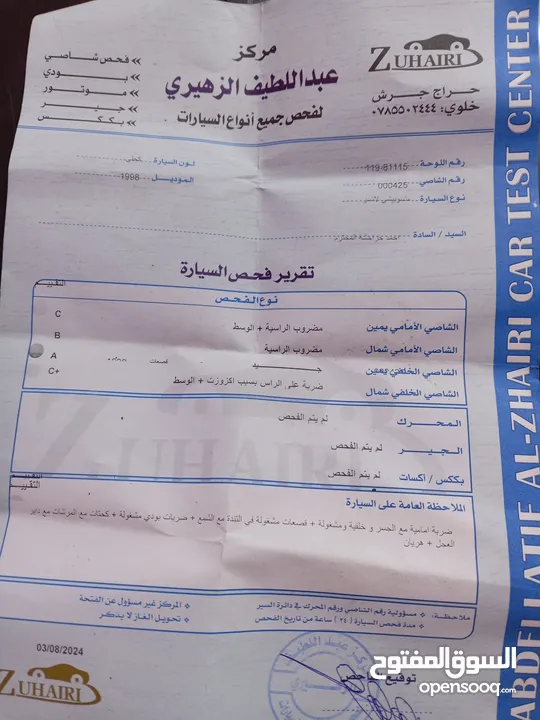 ZUHAIRI
حراج جرش
خلوي: ٠٧٨٥٥٠٢٤٤٤
مركز
عبداللطيف الزهيري
لفحص جميع أنواع السيارات
» فحص شاصي
» بودي
» موتور
» جير
» بككس
رقم اللوحة: 119-81115
رقم الشاصي: 000425
نوع السيارة:
لون السيارة: كحلي
الموديل: 1998
السيد / السادة:
تقرير فحص السيارة
نوع الفحص
التقييم
الشاصي الأمامي يمين مضروب الراسية + الوسط C
الشاصي الأمامي شمال مضروب الراسية B
الشاصي الخلفي يمين جــيــد A
الشاصي الخلفي شمال ضربة على الراس بسبب اكزوزت + الوسط C+
المحرك لم يتم الفحص
الجير لم يتم الفحص
بككس / اكسات لم يتم الفحص
التقييم
الملاحظة العامة على السيارة
ضربة امامية مع الجسر و خلفية ومشغولة + قصعات مشغولة في التندة مع الشمع + ضربات بودي مشغولة + كحتات مع المرشات مع داير
العجل + هريان
ملاحظة: ❖ مسؤولية رقم الشاصي ورقم المحرك في دائرة السير
❖ مدة فحص السيارة (٢٤) ساعة من تاريخ الفحص
❖ المركز غير مسؤول عن الفتحة
❖ تحويل الغاز لا يذكر
03/08/2024
ZUHAIRI
توقيع
ABDELLATIF AL-ZHAIRI CAR TEST CENTER
السوق المفتوح
opensooq.com